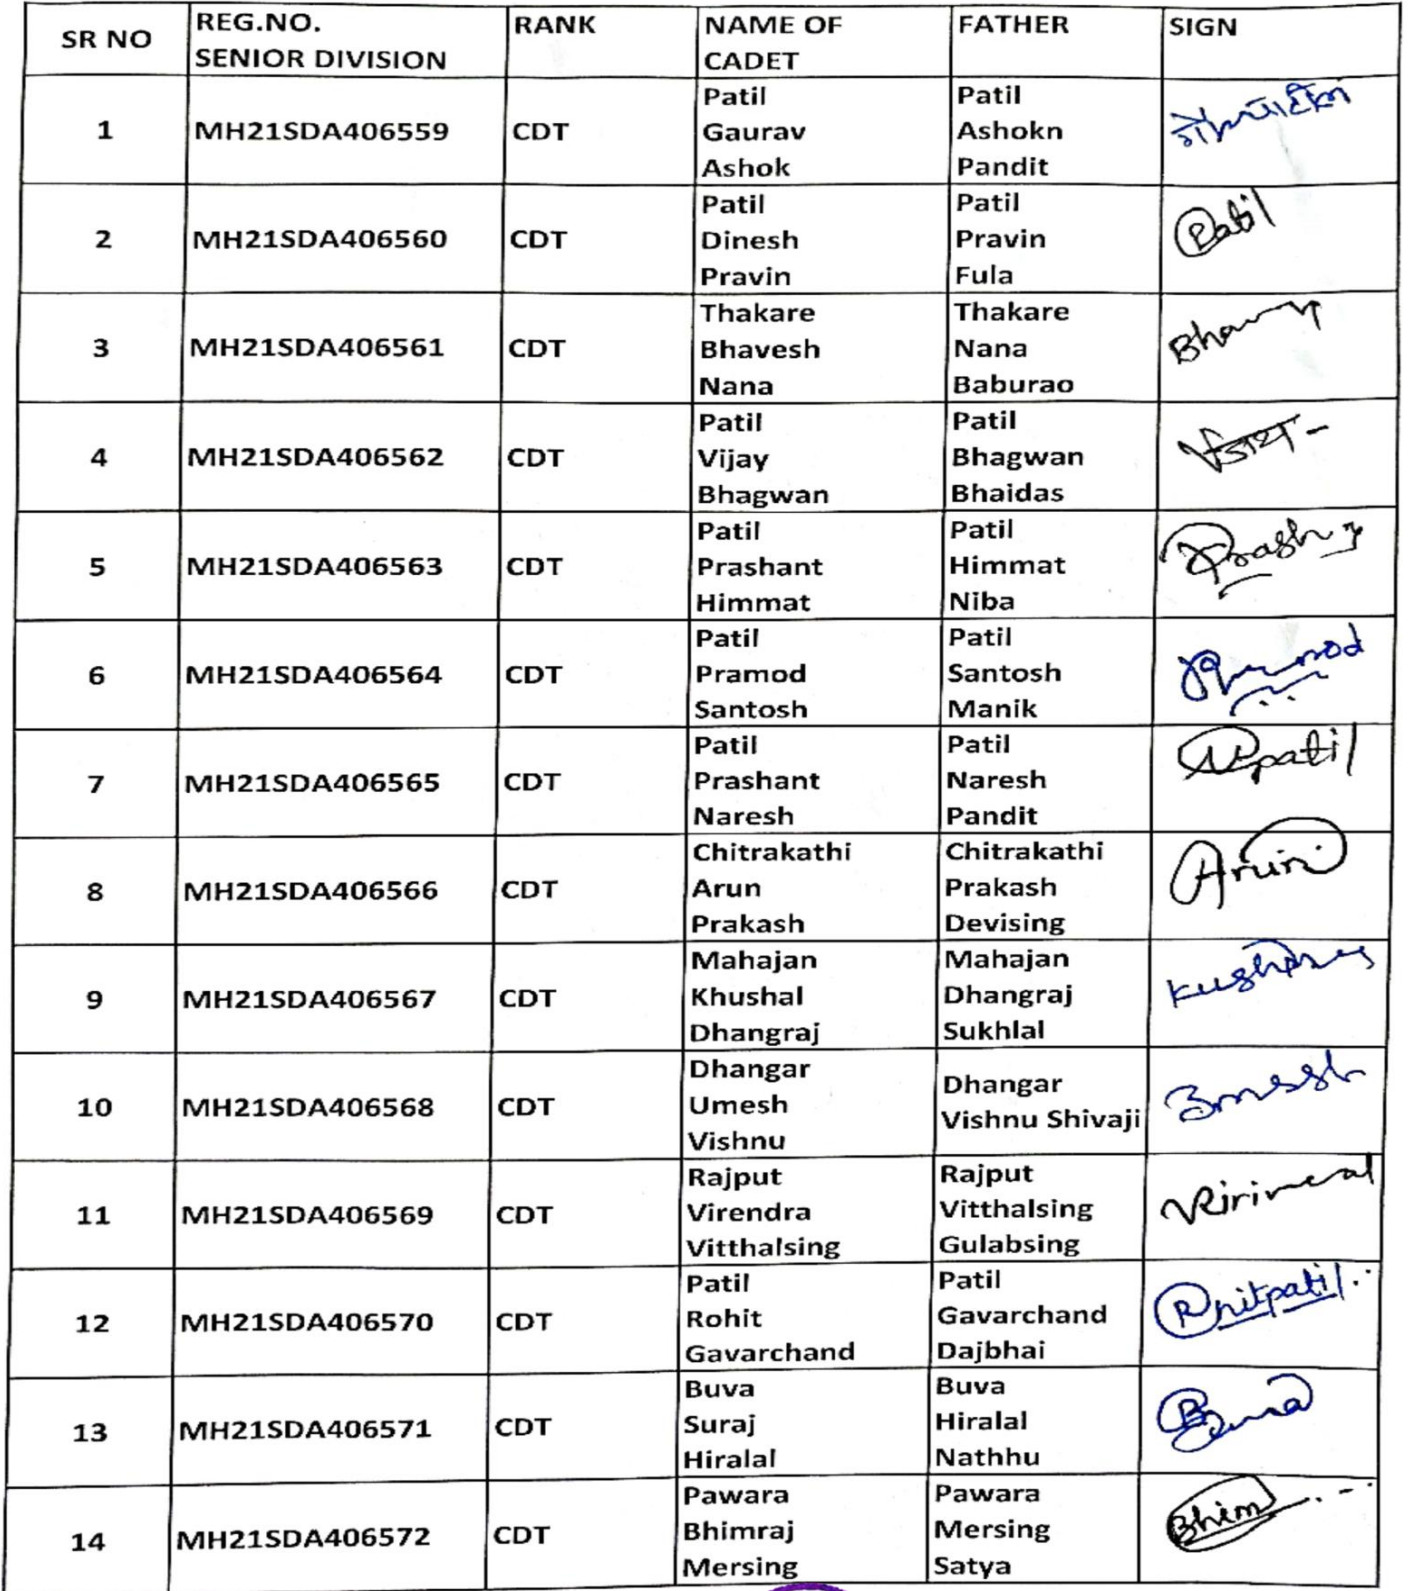 SR NO
REG.NO.
SENIOR DIVISION
RANK
NAME OF
CADET
FATHER
SIGN
1
MH21SDA406559
CDT
Patil
Gaurav
Ashok
Patil
Ashokn
Pandit
2
MH21SDA406560
CDT
Patil
Dinesh
Pravin
Patil
Pravin
Fula
Patil
3
MH21SDA406561
CDT
Thakare
Bhavesh
Nana
Thakare
Nana
Baburao
4
MH21SDA406562
CDT
Patil
Vijay
Bhagwan
Patil
Bhagwan
Bhaidas
5
MH21SDA406563
CDT
Patil
Prashant
Himmat
Patil
Himmat
Niba
6
MH21SDA406564
CDT
Patil
Pramod
Santosh
Patil
Santosh
Manik
7
MH21SDA406565
CDT
Patil
Prashant
Naresh
Patil
Naresh
Pandit
8
MH21SDA406566
CDT
Chitrakathi
Arun
Prakash
Chitrakathi
Prakash
Devising
Arun
9
MH21SDA406567
CDT
Mahajan
Khushal
Dhangraj
Mahajan
Dhangraj
Sukhlal
10
MH21SDA406568
CDT
Dhangar
Umesh
Vishnu
Dhangar
Vishnu Shivaji
11
MH21SDA406569
CDT
Rajput
Virendra
Vitthalsing
Rajput
Vitthalsing
Gulabsing
12
MH21SDA406570
CDT
Patil
Rohit
Gavarchand
Patil
Gavarchand
Dajbhai
13
MH21SDA406571
CDT
Buva
Suraj
Hiralal
Buva
Hiralal
Nathhu
14
MH21SDA406572
CDT
Pawara
Bhimraj
Mersing
Pawara
Mersing
Satya
Bhim